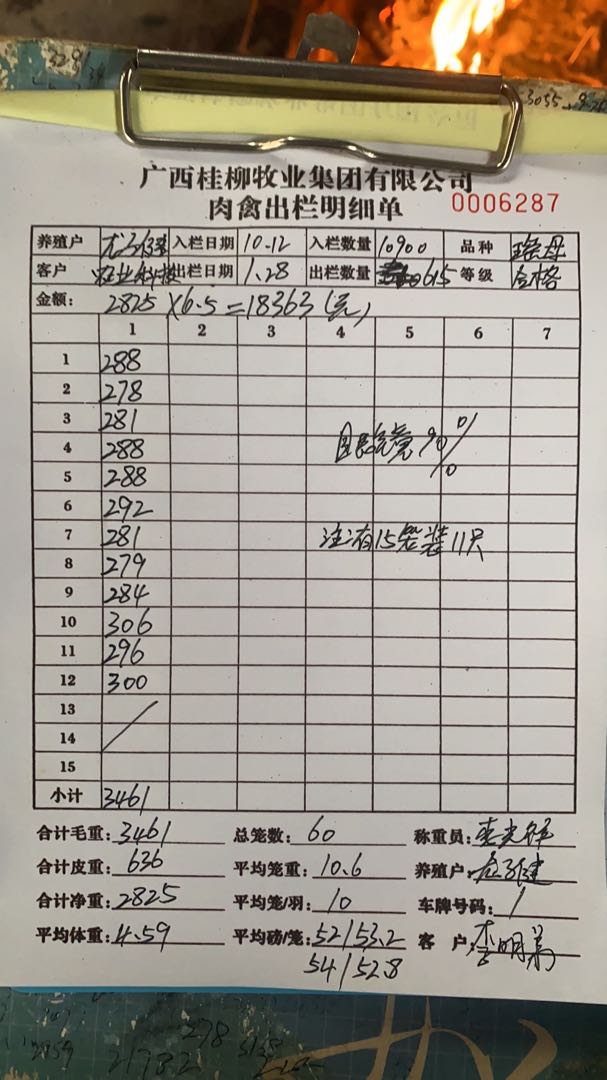 广西桂柳牧业集团有限公司
肉禽出栏明细单 0006287
养殖户 入栏日期 10.12 入栏数量 10900 品种 瑶母
客户 牧业科技 出栏日期 1.28 出栏数量 615 等级 合格
金额: 2825×6.5=18363(元)
1 2 3 4 5 6 7
1 288
2 278
3 281
4 288
5 288
6 292
7 281
8 279
9 284
10 306
11 296
12 300
13
14
15
小计 3461
90%
注:有15笼装11只
合计毛重: 3461 总笼数: 60 称重员:
合计皮重: 636 平均笼重: 10.6 养殖户:
合计净重: 2825 平均笼/羽: 10 车牌号码: /
平均体重: 4.59 平均磅/笼: 52/53.2 客 户: 李明
54/52.8